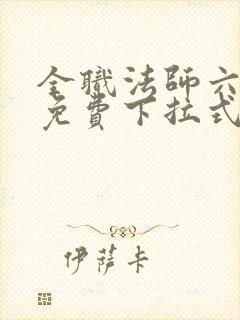 全職法師六
免費下拉式
伊薩卡